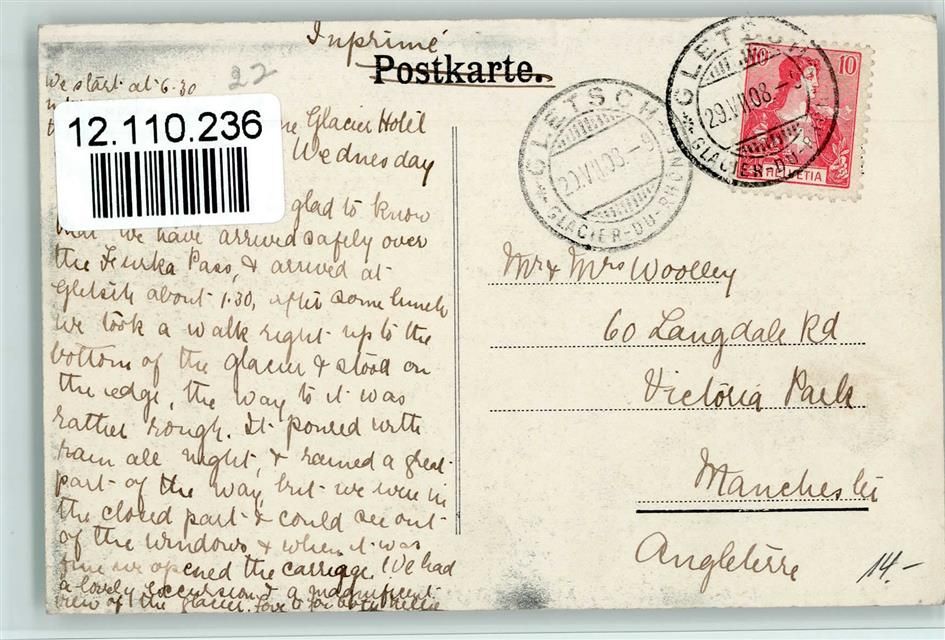 Inprimé
Postkarte.
We start at 6.30
22
12.110.236
Glacier Hotel
Wednesday
glad to know
that we have arrived safely over
the Furka Pass, & arrived at
Gletsch about 1.30, after some lunch
we took a walk right up to the
bottom of the glacier & stood on
the edge, the way to it was
rather rough. It poured with
rain all night, & rained a great
part of the way but we were in
the closed part & could see out
of the windows & when it was
fine we opened the carriage. We had
a lovely excursion & a magnificent
view of the glacier. love to for both Nellie
GLETSCH
29.VII.08.-9
GLACIER-DU-RHÔNE
GLETSCH
29.VII.08.-9
GLACIER-DU-RHÔNE
10 10
HELVETIA
Mr & Mrs Woolley
60 Langdale Rd
Victoria Park
Manchester
Angleterre
14.-